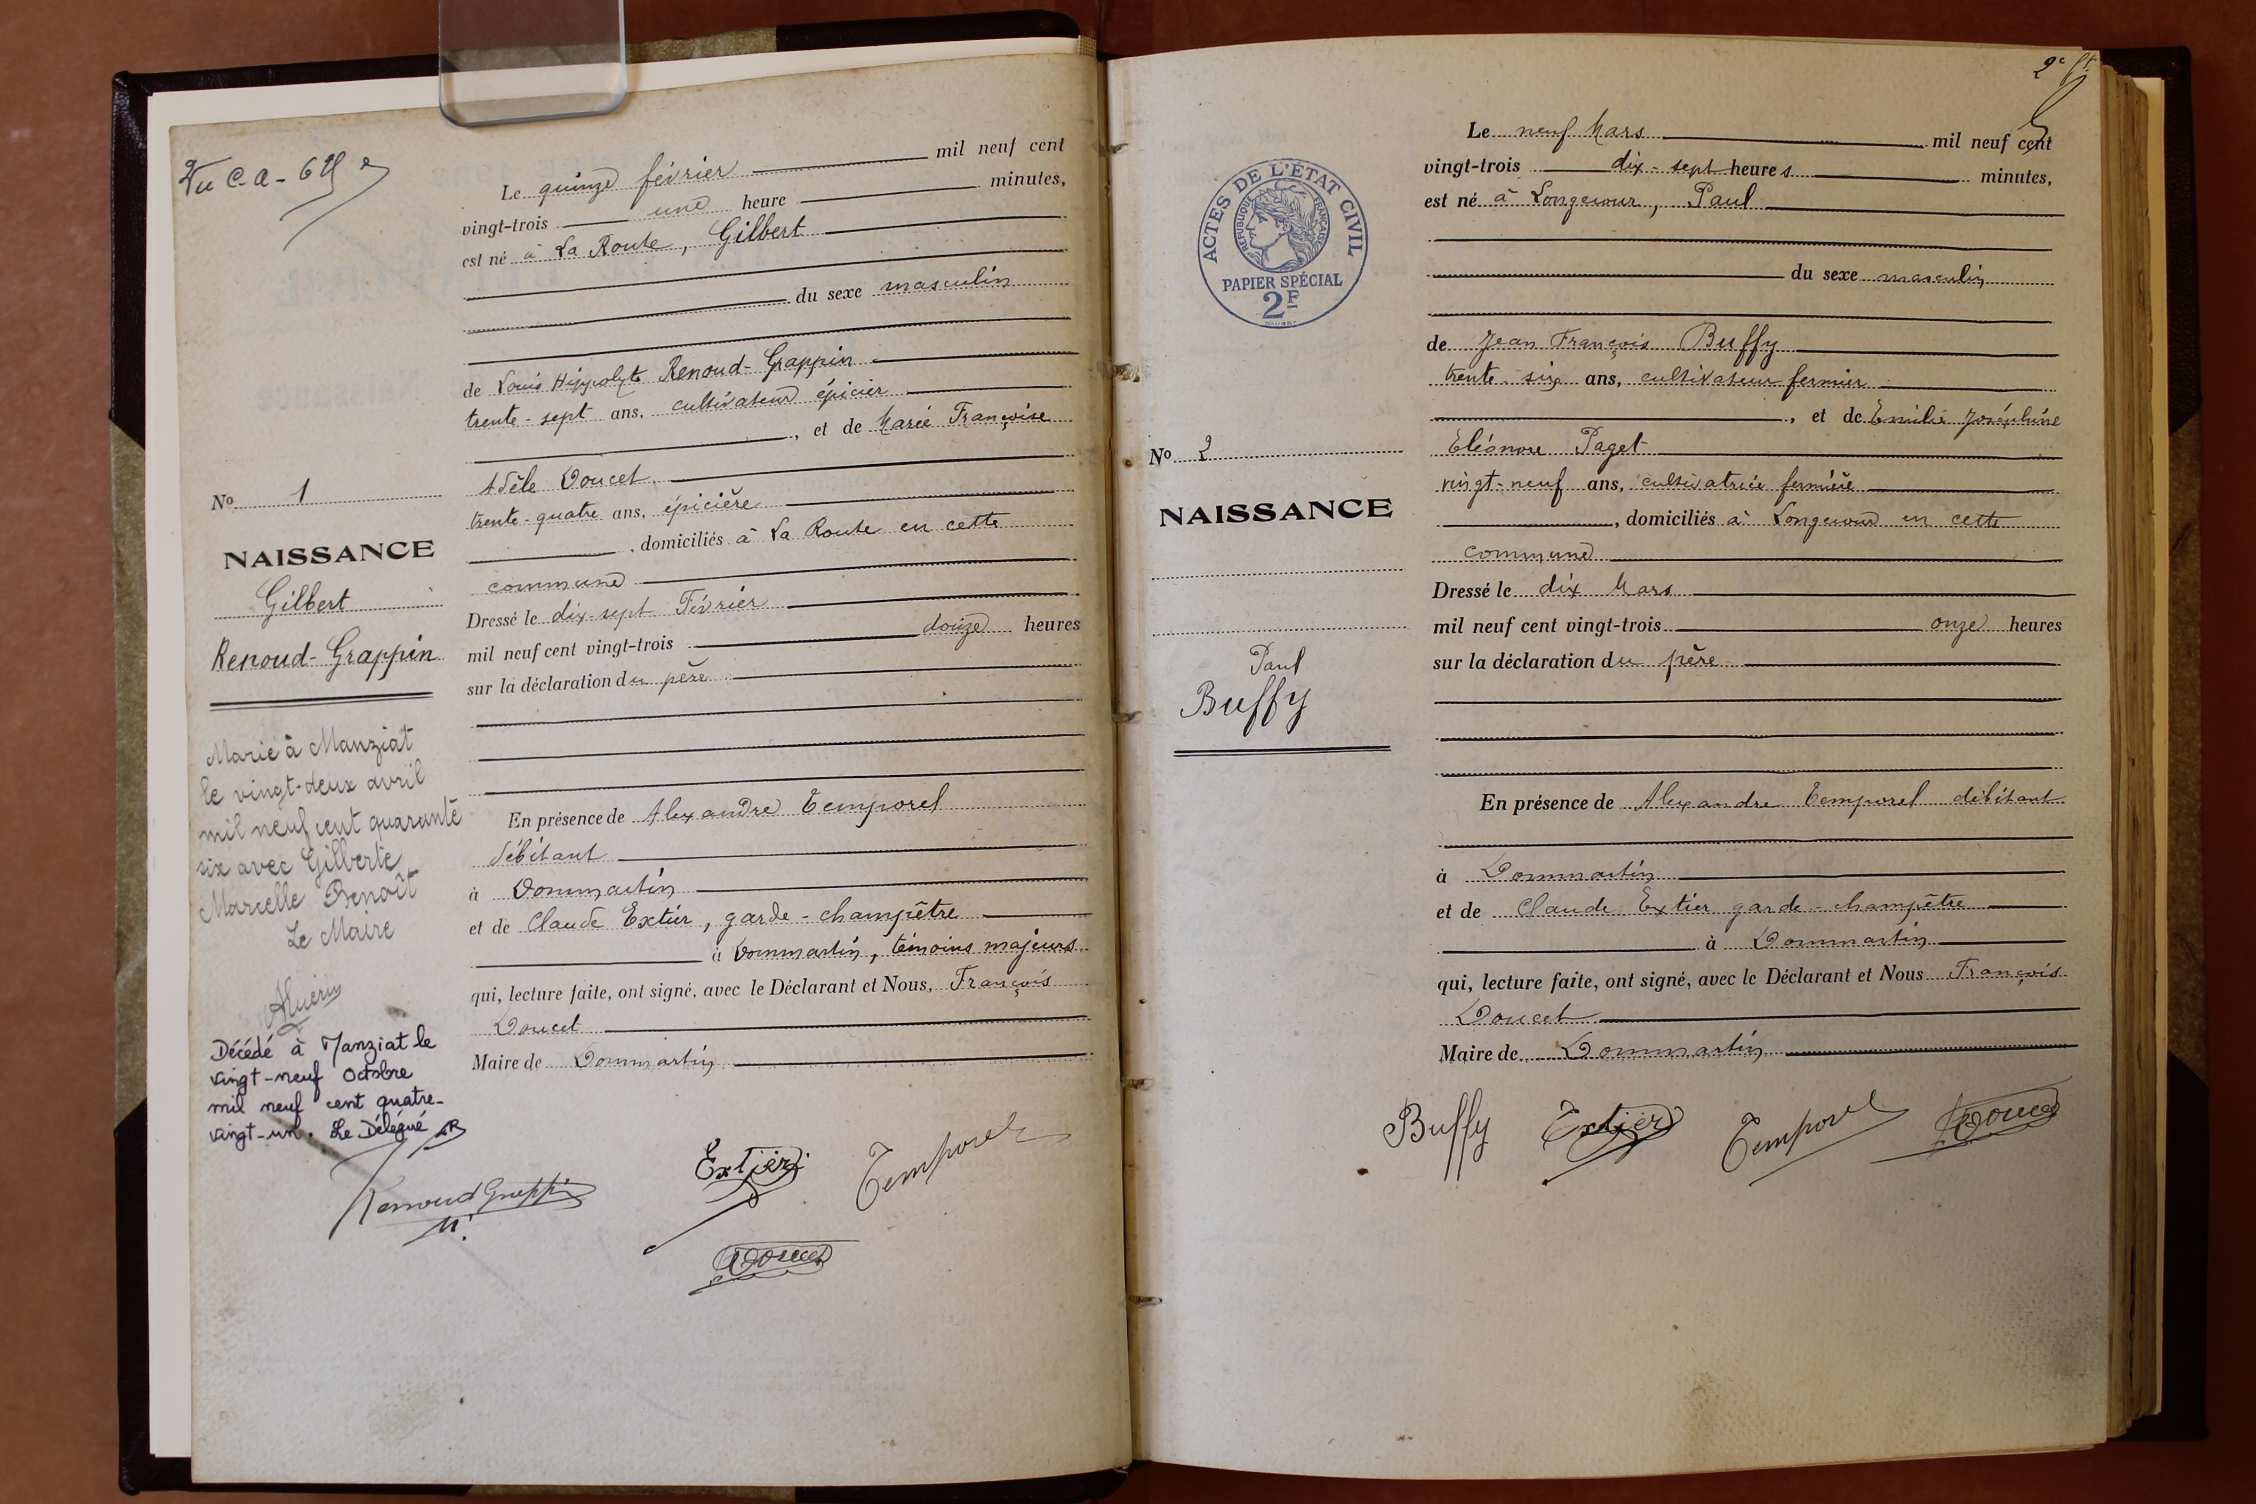 Le quinze février mil neuf cent
vingt-trois une heure minutes,
est né à La Route, Gilbert
du sexe masculin
de Louis Hippolyte Renoud-Grappin
trente-sept ans, cultivateur épicier
, et de Marie Françoise
Adèle Doucet
trente-quatre ans, épicière
, domiciliés à La Route en cette
commune
Dressé le dix-sept Février
mil neuf cent vingt-trois douze heures
sur la déclaration du père
En présence de Alexandre Temporel
débitant
à Dommartin
et de Claude Extier, garde-champêtre
à Dommartin, témoins majeurs
qui, lecture faite, ont signé, avec le Déclarant et Nous, François
Doucet
Maire de Dommartin
Nº 1
NAISSANCE
Gilbert
Renoud-Grappin
Marié à Manziat
le vingt-deux avril
mil neuf cent quarante
six avec Gilberte
Marcelle Benoît
Le Maire
Décédé à Manziat le
vingt-neuf octobre
mil neuf cent quatre-
vingt-un. Le Délégué
Renoud Grappin
Extier
Temporel
Doucet
2e
ACTES DE L'ÉTAT CIVIL
RÉPUBLIQUE FRANÇAISE
PAPIER SPÉCIAL
2F
Nº 2
NAISSANCE
Paul
Buffy
Le neuf Mars mil neuf cent
vingt-trois dix-sept heures minutes,
est né à Longecour, Paul
du sexe masculin
de Jean François Buffy
trente-six ans, cultivateur fermier
, et de Emilie Joséphine
Eléonore Paget
vingt-neuf ans, cultivatrice fermière
, domiciliés à Longecour en cette
commune
Dressé le dix Mars
mil neuf cent vingt-trois onze heures
sur la déclaration du père
En présence de Alexandre Temporel débitant
à Dommartin
et de Claude Extier garde-champêtre
à Dommartin
qui, lecture faite, ont signé, avec le Déclarant et Nous François
Doucet
Maire de Dommartin
Buffy Extier Temporel Doucet